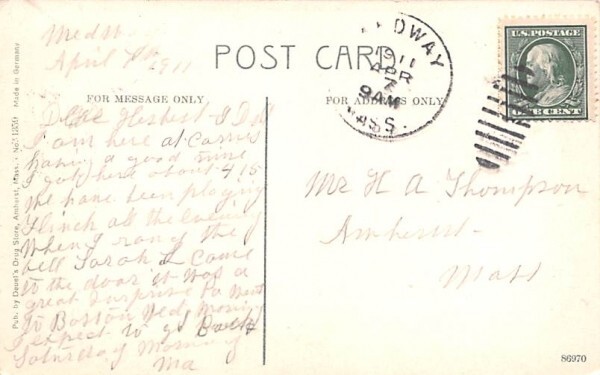 Medw
April 7th 1911
POST CARD
FOR MESSAGE ONLY
FOR ADDRESS ONLY
MEDWAY
1911
APR
7
9 AM
MASS.
U.S. POSTAGE
ONE CENT
Dear
I am here at Carries
having a good time
I got here about 4 15
We have been playing
Flinch all the evening
When I rang the
bell Sarah I came
to the door it was a
great surprise Pa went
to Boston Wed. morning
I expect to go Back
Saturday Morning
Ma
Mr H A Thompson
Amherst
Mass
Pub. by Deuel's Drug Store, Amherst, Mass. No. Made in Germany
86970